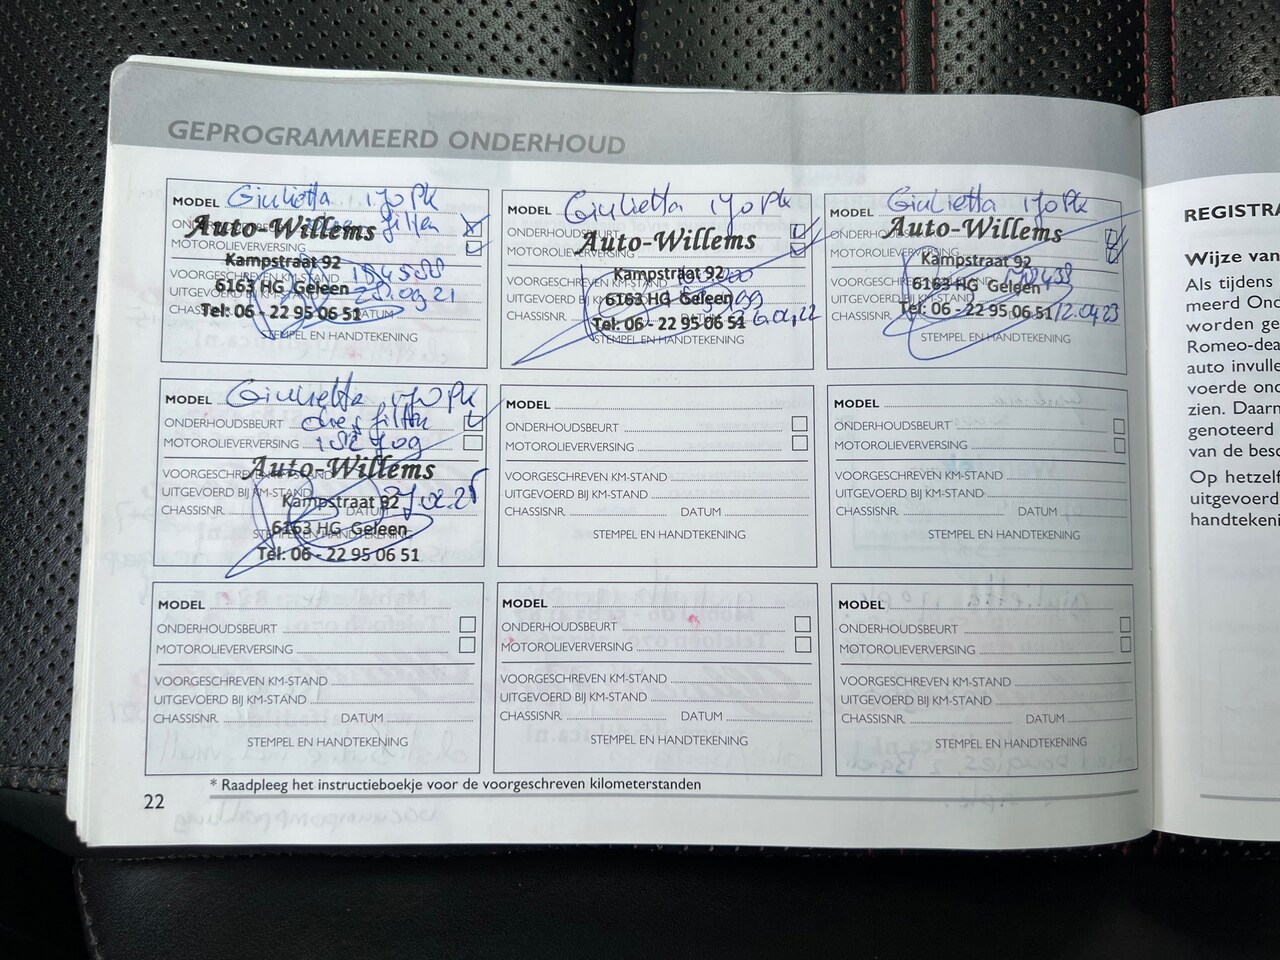 GEPROGRAMMEERD ONDERHOUD
MODEL Giulietta 170 Pk
ONDERHOUDSBEURT filter
MOTOROLIEVERVERSING
Auto-Willems
Kampstraat 92
6163 HG Geleen
Tel: 06 - 22 95 06 51
VOORGESCHREVEN KM-STAND
UITGEVOERD BIJ KM-STAND
CHASSISNR. DATUM
STEMPEL EN HANDTEKENING
MODEL Giulietta 170 Pk
ONDERHOUDSBEURT
MOTOROLIEVERVERSING
Auto-Willems
Kampstraat 92
6163 HG Geleen
Tel: 06 - 22 95 06 51
VOORGESCHREVEN KM-STAND
UITGEVOERD BIJ KM-STAND
CHASSISNR. DATUM
STEMPEL EN HANDTEKENING
MODEL Giulietta 170 Pk
ONDERHOUDSBEURT
MOTOROLIEVERVERSING
Auto-Willems
Kampstraat 92
6163 HG Geleen
Tel: 06 - 22 95 06 51 12.04.23
VOORGESCHREVEN KM-STAND
UITGEVOERD BIJ KM-STAND
CHASSISNR. DATUM
STEMPEL EN HANDTEKENING
MODEL Giulietta 170 Pk
ONDERHOUDSBEURT filter
MOTOROLIEVERVERSING
VOORGESCHREVEN KM-STAND
Auto-Willems
UITGEVOERD BIJ KM-STAND
Kampstraat 92
CHASSISNR. DATUM
6163 HG Geleen
STEMPEL EN HANDTEKENING
Tel: 06 - 22 95 06 51
MODEL
ONDERHOUDSBEURT
MOTOROLIEVERVERSING
VOORGESCHREVEN KM-STAND
UITGEVOERD BIJ KM-STAND
CHASSISNR. DATUM
STEMPEL EN HANDTEKENING
MODEL
ONDERHOUDSBEURT
MOTOROLIEVERVERSING
VOORGESCHREVEN KM-STAND
UITGEVOERD BIJ KM-STAND
CHASSISNR. DATUM
STEMPEL EN HANDTEKENING
MODEL
ONDERHOUDSBEURT
MOTOROLIEVERVERSING
VOORGESCHREVEN KM-STAND
UITGEVOERD BIJ KM-STAND
CHASSISNR. DATUM
STEMPEL EN HANDTEKENING
MODEL
ONDERHOUDSBEURT
MOTOROLIEVERVERSING
VOORGESCHREVEN KM-STAND
UITGEVOERD BIJ KM-STAND
CHASSISNR. DATUM
STEMPEL EN HANDTEKENING
MODEL
ONDERHOUDSBEURT
MOTOROLIEVERVERSING
VOORGESCHREVEN KM-STAND
UITGEVOERD BIJ KM-STAND
CHASSISNR. DATUM
STEMPEL EN HANDTEKENING
* Raadpleeg het instructieboekje voor de voorgeschreven kilometerstanden
22
REGISTRA
Wijze van
Als tijdens
meerd Ond
worden ge
Romeo-dea
auto invulle
voerde ond
zien. Daarn
genoteerd
van de besc
Op hetzelf
uitgevoerd
handtekeni